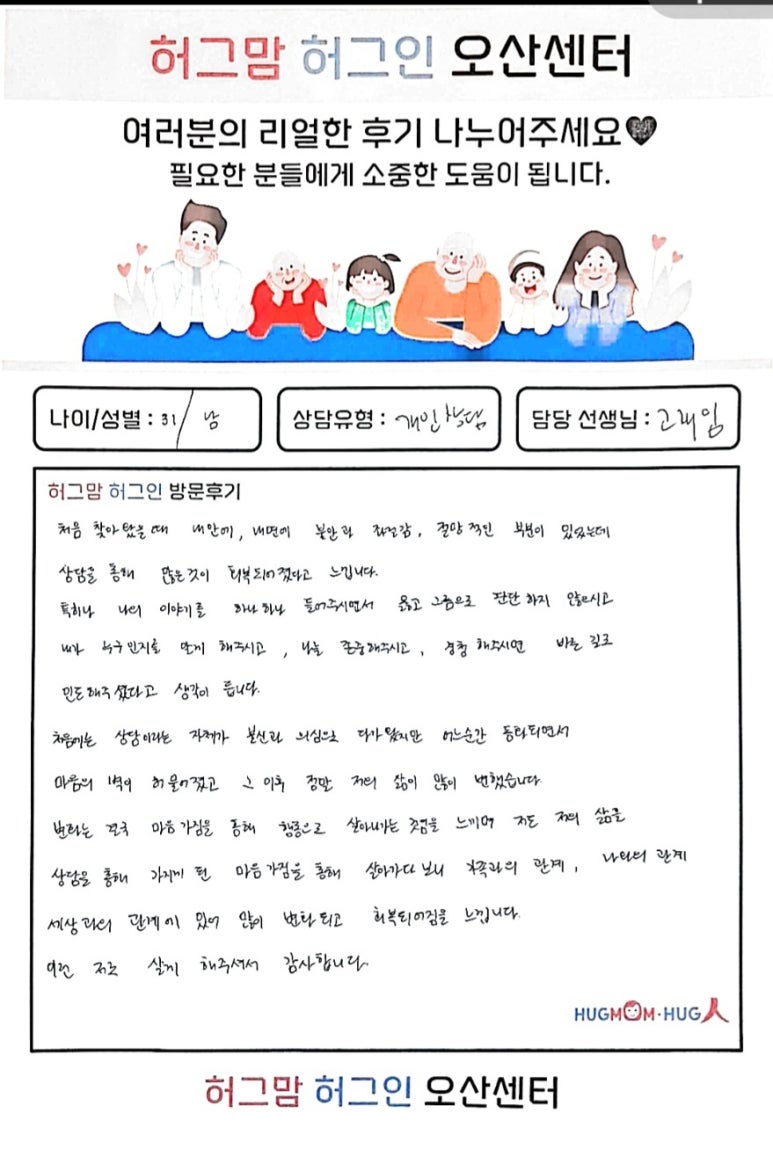 허그맘 허그인 오산센터
여러분의 리얼한 후기 나누어주세요
필요한 분들에게 소중한 도움이 됩니다.
나이/성별 : 31/ 남
상담유형 : 개인상담
담당 선생님 : 고래임
허그맘 허그인 방문후기
처음 찾아왔을 때 내 안에, 내면에 불안과 좌절감, 절망적인 부분이 있었는데
상담을 통해 많은 것이 회복되어졌다고 느낍니다.
특히나 나의 이야기를 하나하나 들어주시면서 옳고 그름으로 판단하지 않으시고
내가 누구인지를 알게 해주시고, 나를 존중해주시고, 경청해주시면 바른 길로
인도해주셨다고 생각이 듭니다.
처음에는 상담이라는 자체가 불신과 의심으로 다가왔지만 어느순간 동화되면서
마음의 벽이 허물어졌고 그 이후 정말 저의 삶이 많이 변했습니다
변화는 결국 마음가짐을 통해 행동으로 살아나가는 것임을 느끼며 저도 저의 삶을
상담을 통해 가지게 된 마음가짐을 통해 살아가다 보니 가족과의 관계, 나와의 관계
세상과의 관계에 있어 많이 변화되고 회복되어짐을 느낍니다.
이런 저로 살게 해주셔서 감사합니다.
HUGMOM·HUG人
허그맘 허그인 오산센터